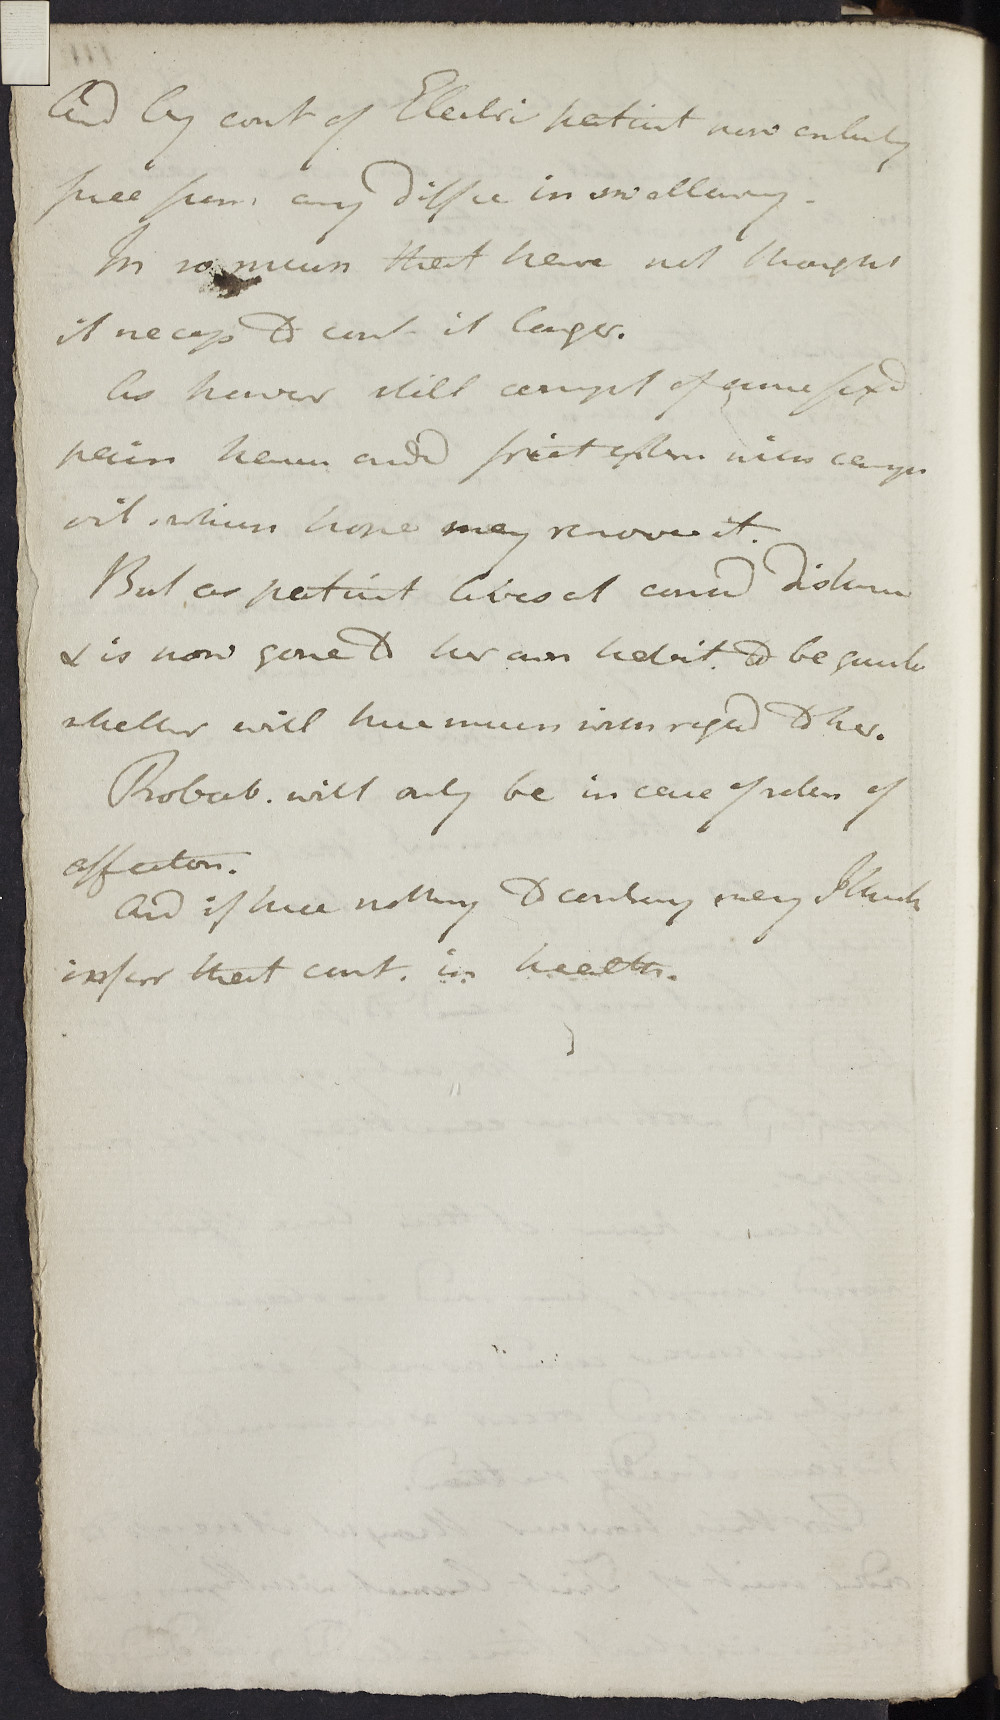 And by cont of Electri patient now entirely
free from any diffic in swallowing.
In so mean that have not thought
it necess to cont it longer.
As howev still compt of some fixd
pain have ordd frict with camph
oil which hope may remove it.
But as patient lives at consd distan
& is now gone to her own habit. to be
whether will have more with regard to her.
Probab. will only be in case of return of
affection.
And if hear nothing to contrary may I think
infer that cont. in health.